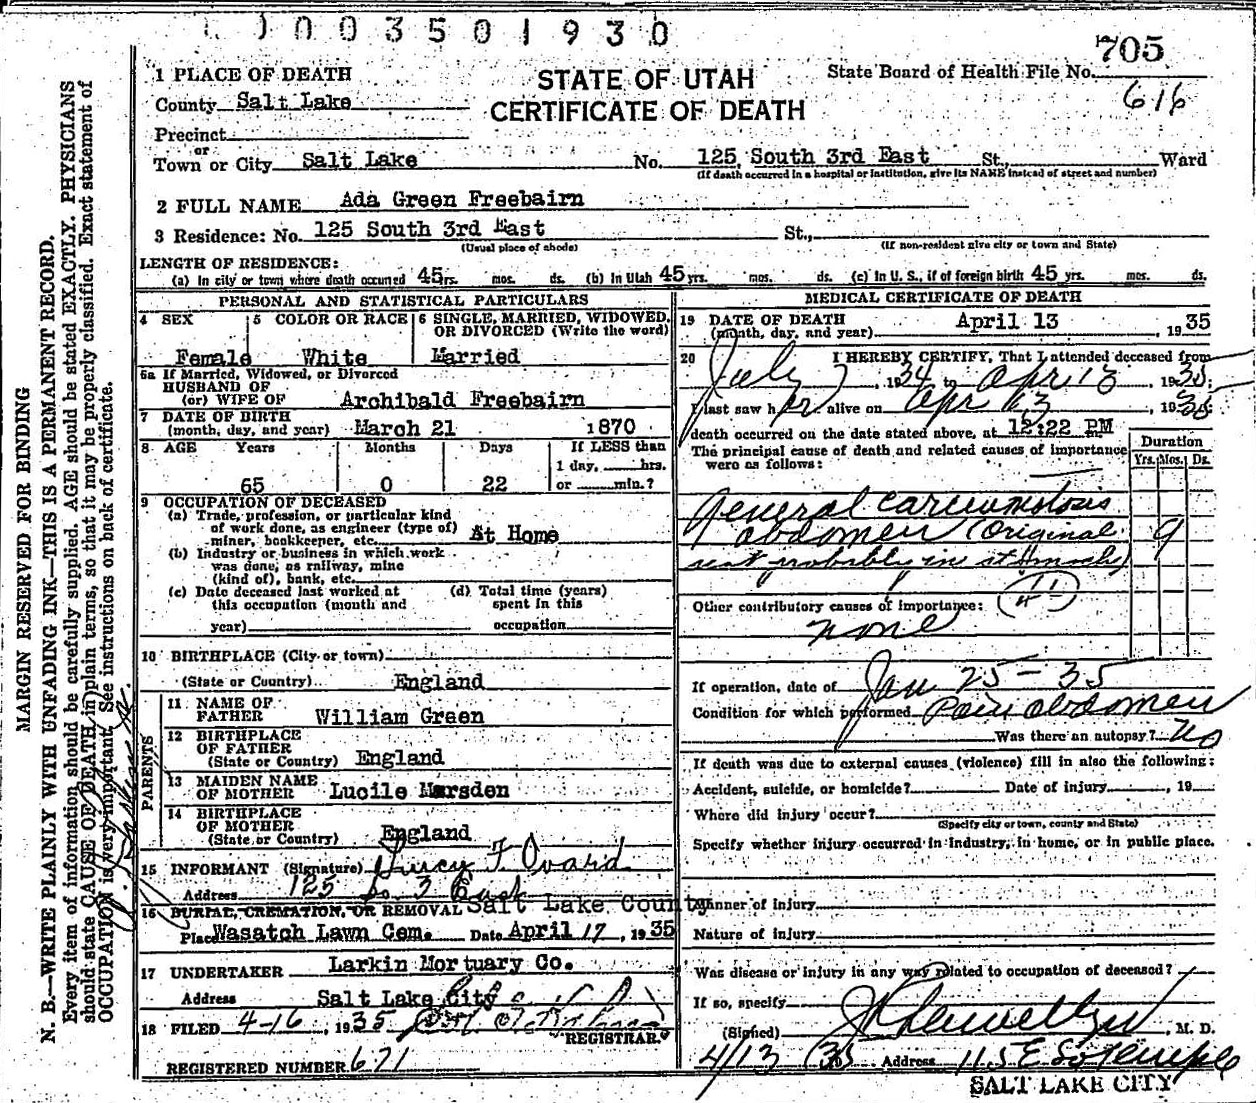 0 0 3 5 0 1 9 3 0
705
1 PLACE OF DEATH
STATE OF UTAH
CERTIFICATE OF DEATH
State Board of Health File No.
616
County Salt Lake
Precinct
or
Town or City Salt Lake No. 125 South 3rd East St., Ward
(If death occurred in a hospital or institution, give its NAME instead of street and number)
2 FULL NAME Ada Green Freebairn
3 Residence: No. 125 South 3rd East St.,
(Usual place of abode) (If non-resident give city or town and State)
LENGTH OF RESIDENCE:
(a) In city or town where death occurred 45 yrs. mos. ds. (b) In Utah 45 yrs. mos. ds. (c) In U. S., if of foreign birth 45 yrs. mos. ds.
PERSONAL AND STATISTICAL PARTICULARS
4 SEX 5 COLOR OR RACE 6 SINGLE, MARRIED, WIDOWED, OR DIVORCED (Write the word)
Female White Married
6a If Married, Widowed, or Divorced
HUSBAND OF
(or) WIFE OF Archibald Freebairn
7 DATE OF BIRTH
(month, day, and year) March 21 1870
8 AGE Years Months Days If LESS than
1 day, hrs.
65 0 22 or min.?
9 OCCUPATION OF DECEASED
(a) Trade, profession, or particular kind
of work done, as engineer (type of)
miner, bookkeeper, etc. At Home
(b) Industry or business in which work
was done, as railway, mine
(kind of), bank, etc.
(c) Date deceased last worked at
this occupation (month and
year)
(d) Total time (years)
spent in this
occupation
10 BIRTHPLACE (City or town)
(State or Country) England
PARENTS
11 NAME OF
FATHER William Green
12 BIRTHPLACE
OF FATHER
(State or Country) England
13 MAIDEN NAME
OF MOTHER Lucile Marsden
14 BIRTHPLACE
OF MOTHER
(State or Country) England
15 INFORMANT (Signature) Lucy F Ovard
Address 125 So 3 East
16 BURIAL, CREMATION, OR REMOVAL Salt Lake County
Place Wasatch Lawn Cem. Date April 17, 1935
17 UNDERTAKER Larkin Mortuary Co.
Address Salt Lake City
18 FILED 4-16, 1935
REGISTRAR.
REGISTERED NUMBER 671
MEDICAL CERTIFICATE OF DEATH
19 DATE OF DEATH
(month, day, and year) April 13, 1935
20 I HEREBY CERTIFY, That I attended deceased from
July, 1934 to Apr 13, 1935;
I last saw her alive on Apr 13, 1935
death occurred on the date stated above, at 12:22 PM
The principal cause of death and related causes of importance
were as follows:
Duration
Yrs. Mos. Ds.
General Carcinomatosis
abdomen (Original 9
seat probably in stomach)
Other contributory causes of importance:
none
If operation, date of Jan 25-35
Condition for which performed Pain abdomen
Was there an autopsy? No
If death was due to external causes (violence) fill in also the following:
Accident, suicide, or homicide? Date of injury, 19
Where did injury occur?
(Specify city or town, county and State)
Specify whether injury occurred in industry, in home, or in public place.
Manner of injury
Nature of injury
Was disease or injury in any way related to occupation of deceased?
If so, specify
(Signed) Llewellyn, M. D.
4/13 35 Address 115 E So Temple
SALT LAKE CITY
MARGIN RESERVED FOR BINDING
N. B.—WRITE PLAINLY WITH UNFADING INK—THIS IS A PERMANENT RECORD.
Every item of information should be carefully supplied. AGE should be stated EXACTLY. PHYSICIANS
should state CAUSE OF DEATH in plain terms, so that it may be properly classified. Exact statement of
OCCUPATION is very important. See instructions on back of certificate.